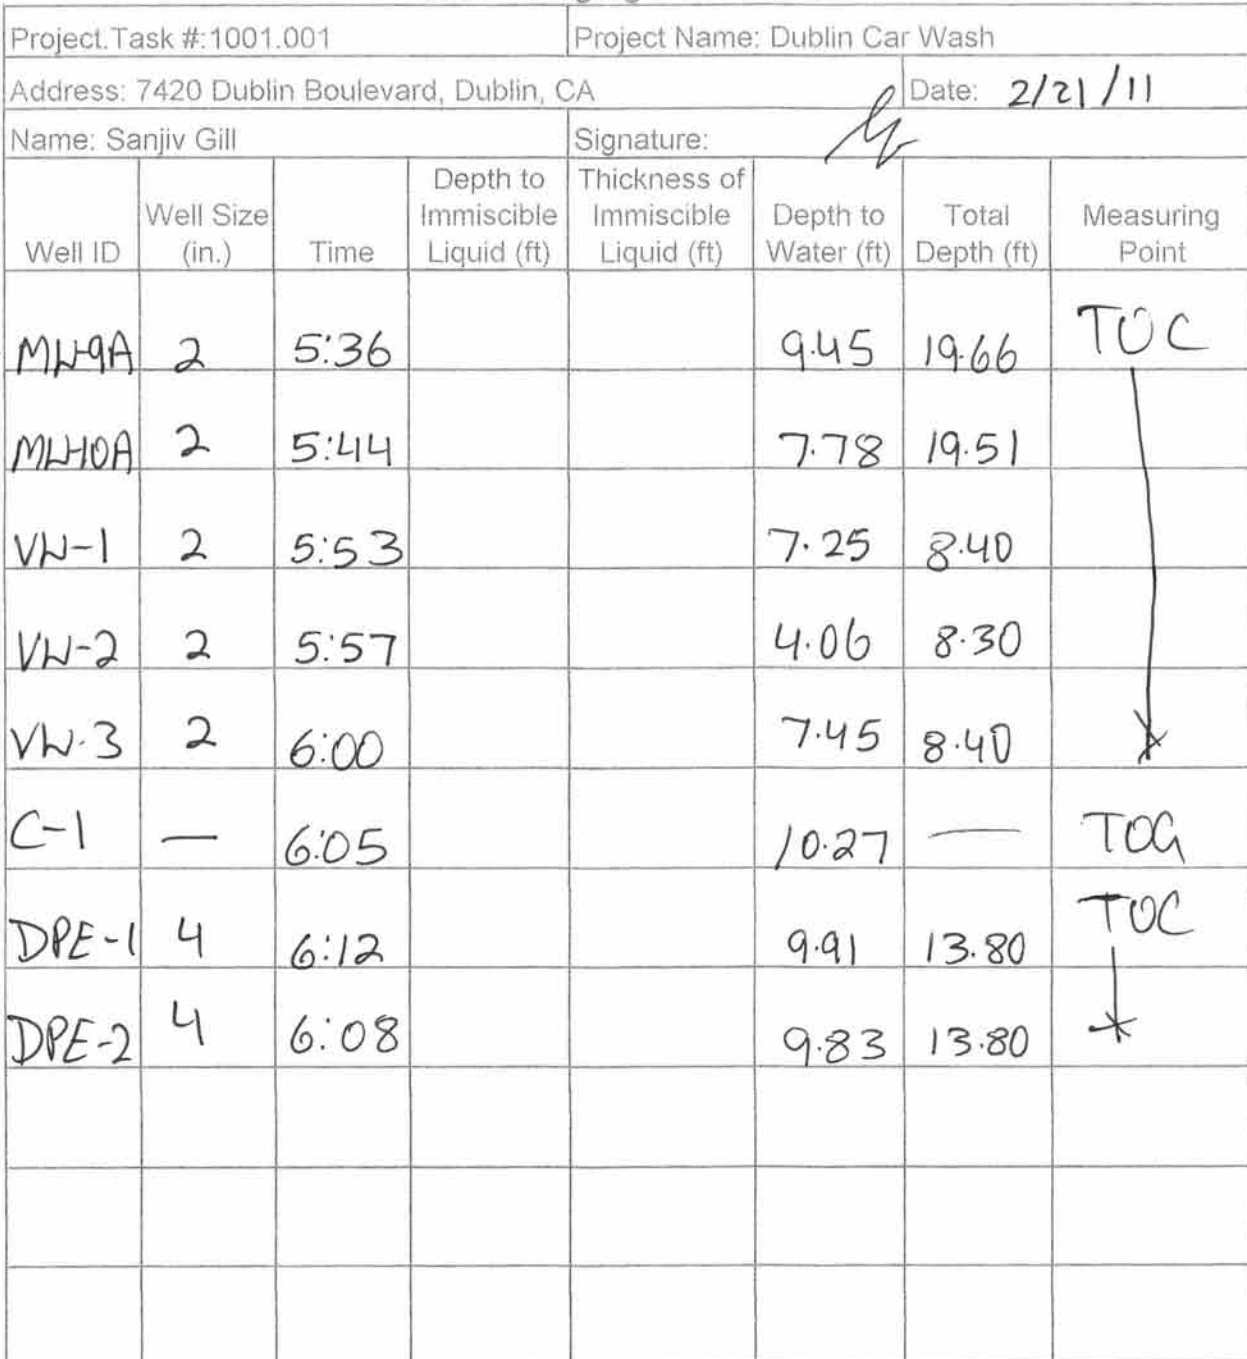 Project.Task #:1001.001 Project Name: Dublin Car Wash
Address: 7420 Dublin Boulevard, Dublin, CA Date: 2/21/11
Name: Sanjiv Gill Signature:
Well ID Well Size (in.) Time Depth to Immiscible Liquid (ft) Thickness of Immiscible Liquid (ft) Depth to Water (ft) Total Depth (ft) Measuring Point
MW-9A 2 5:36 9.45 19.66 TOC
MW-10A 2 5:44 7.78 19.51
VW-1 2 5:53 7.25 8.40
VW-2 2 5:57 4.06 8.30
VW-3 2 6:00 7.45 8.40
C-1 — 6:05 10.27 — TOG
DPE-1 4 6:12 9.91 13.80 TOC
DPE-2 4 6:08 9.83 13.80